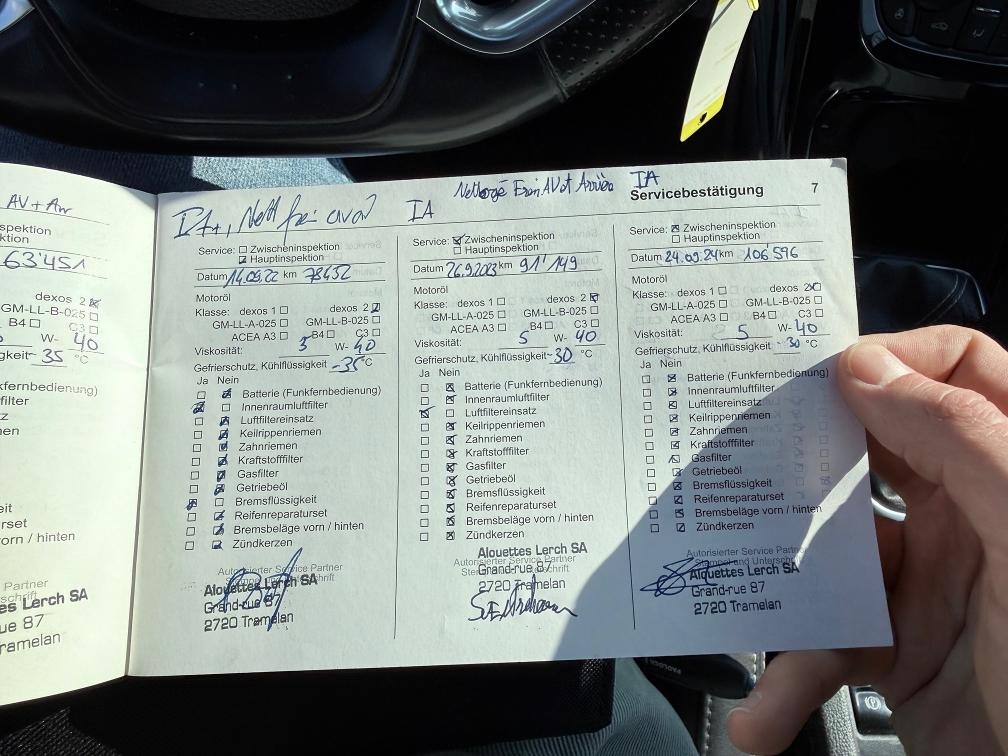 AV + Arr
spektion
ktion
63'451
dexos 2
GM-LL-B-025
B4 C3
W- 40
gkeit- 35 °C
nkfernbedienung)
filter
z
men
eit
rset
orn / hinten
Partner
schrift
es Lerch SA
ue 87
ramelan
IA
Nettoyé Frein AV et Arrière
IA
Servicebestätigung
7
Service: Zwischeninspektion
Hauptinspektion
Datum 14.09.22 km 78452
Motoröl
Klasse: dexos 1 dexos 2
GM-LL-A-025 GM-LL-B-025
ACEA A3 B4 C3
Viskosität: 5 W- 40
Gefrierschutz, Kühlflüssigkeit -35 °C
Ja Nein
Batterie (Funkfernbedienung)
Innenraumluftfilter
Luftfiltereinsatz
Keilrippenriemen
Zahnriemen
Kraftstofffilter
Gasfilter
Getriebeöl
Bremsflüssigkeit
Reifenreparaturset
Bremsbeläge vorn / hinten
Zündkerzen
Autorisierter Service Partner
Alouettes Lerch SA
Grand-rue 87
2720 Tramelan
Service: Zwischeninspektion
Hauptinspektion
Datum 26.9.2023 km 91'149
Motoröl
Klasse: dexos 1 dexos 2
GM-LL-A-025 GM-LL-B-025
ACEA A3 B4 C3
Viskosität: 5 W- 40
Gefrierschutz, Kühlflüssigkeit -30 °C
Ja Nein
Batterie (Funkfernbedienung)
Innenraumluftfilter
Luftfiltereinsatz
Keilrippenriemen
Zahnriemen
Kraftstofffilter
Gasfilter
Getriebeöl
Bremsflüssigkeit
Reifenreparaturset
Bremsbeläge vorn / hinten
Zündkerzen
Alouettes Lerch SA
Autorisierter Service Partner
Grand-rue 87
2720 Tramelan
Service: Zwischeninspektion
Hauptinspektion
Datum 24.09.24 km 106'596
Motoröl
Klasse: dexos 1 dexos 2
GM-LL-A-025 GM-LL-B-025
ACEA A3 B4 C3
Viskosität: 5 W- 40
Gefrierschutz, Kühlflüssigkeit - 30 °C
Ja Nein
Batterie (Funkfernbedienung)
Innenraumluftfilter
Luftfiltereinsatz
Keilrippenriemen
Zahnriemen
Kraftstofffilter
Gasfilter
Getriebeöl
Bremsflüssigkeit
Reifenreparaturset
Bremsbeläge vorn / hinten
Zündkerzen
Autorisierter Service Partner
Stempel und Unterschrift
Alouettes Lerch SA
Grand-rue 87
2720 Tramelan